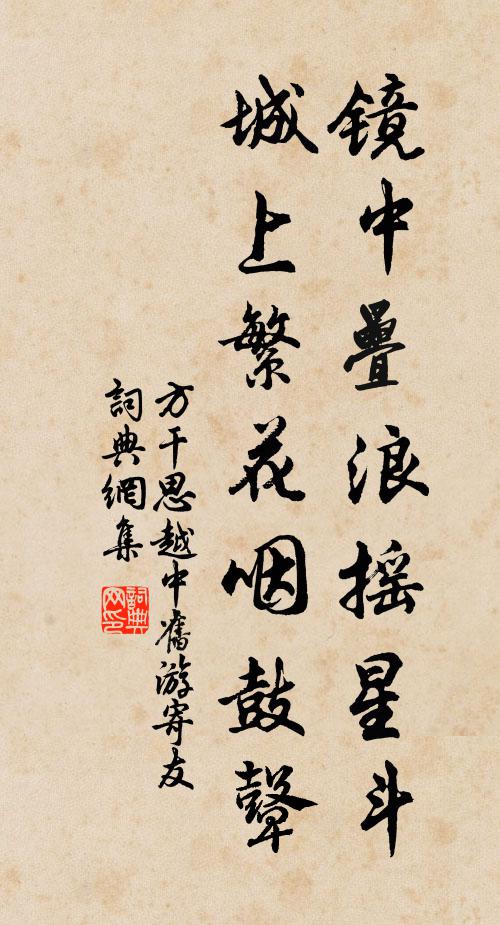 镜中疊浪摇星斗
城上繁花咽鼓鼙
方干思越中舊游寄友
詞典網集
詞典
网印